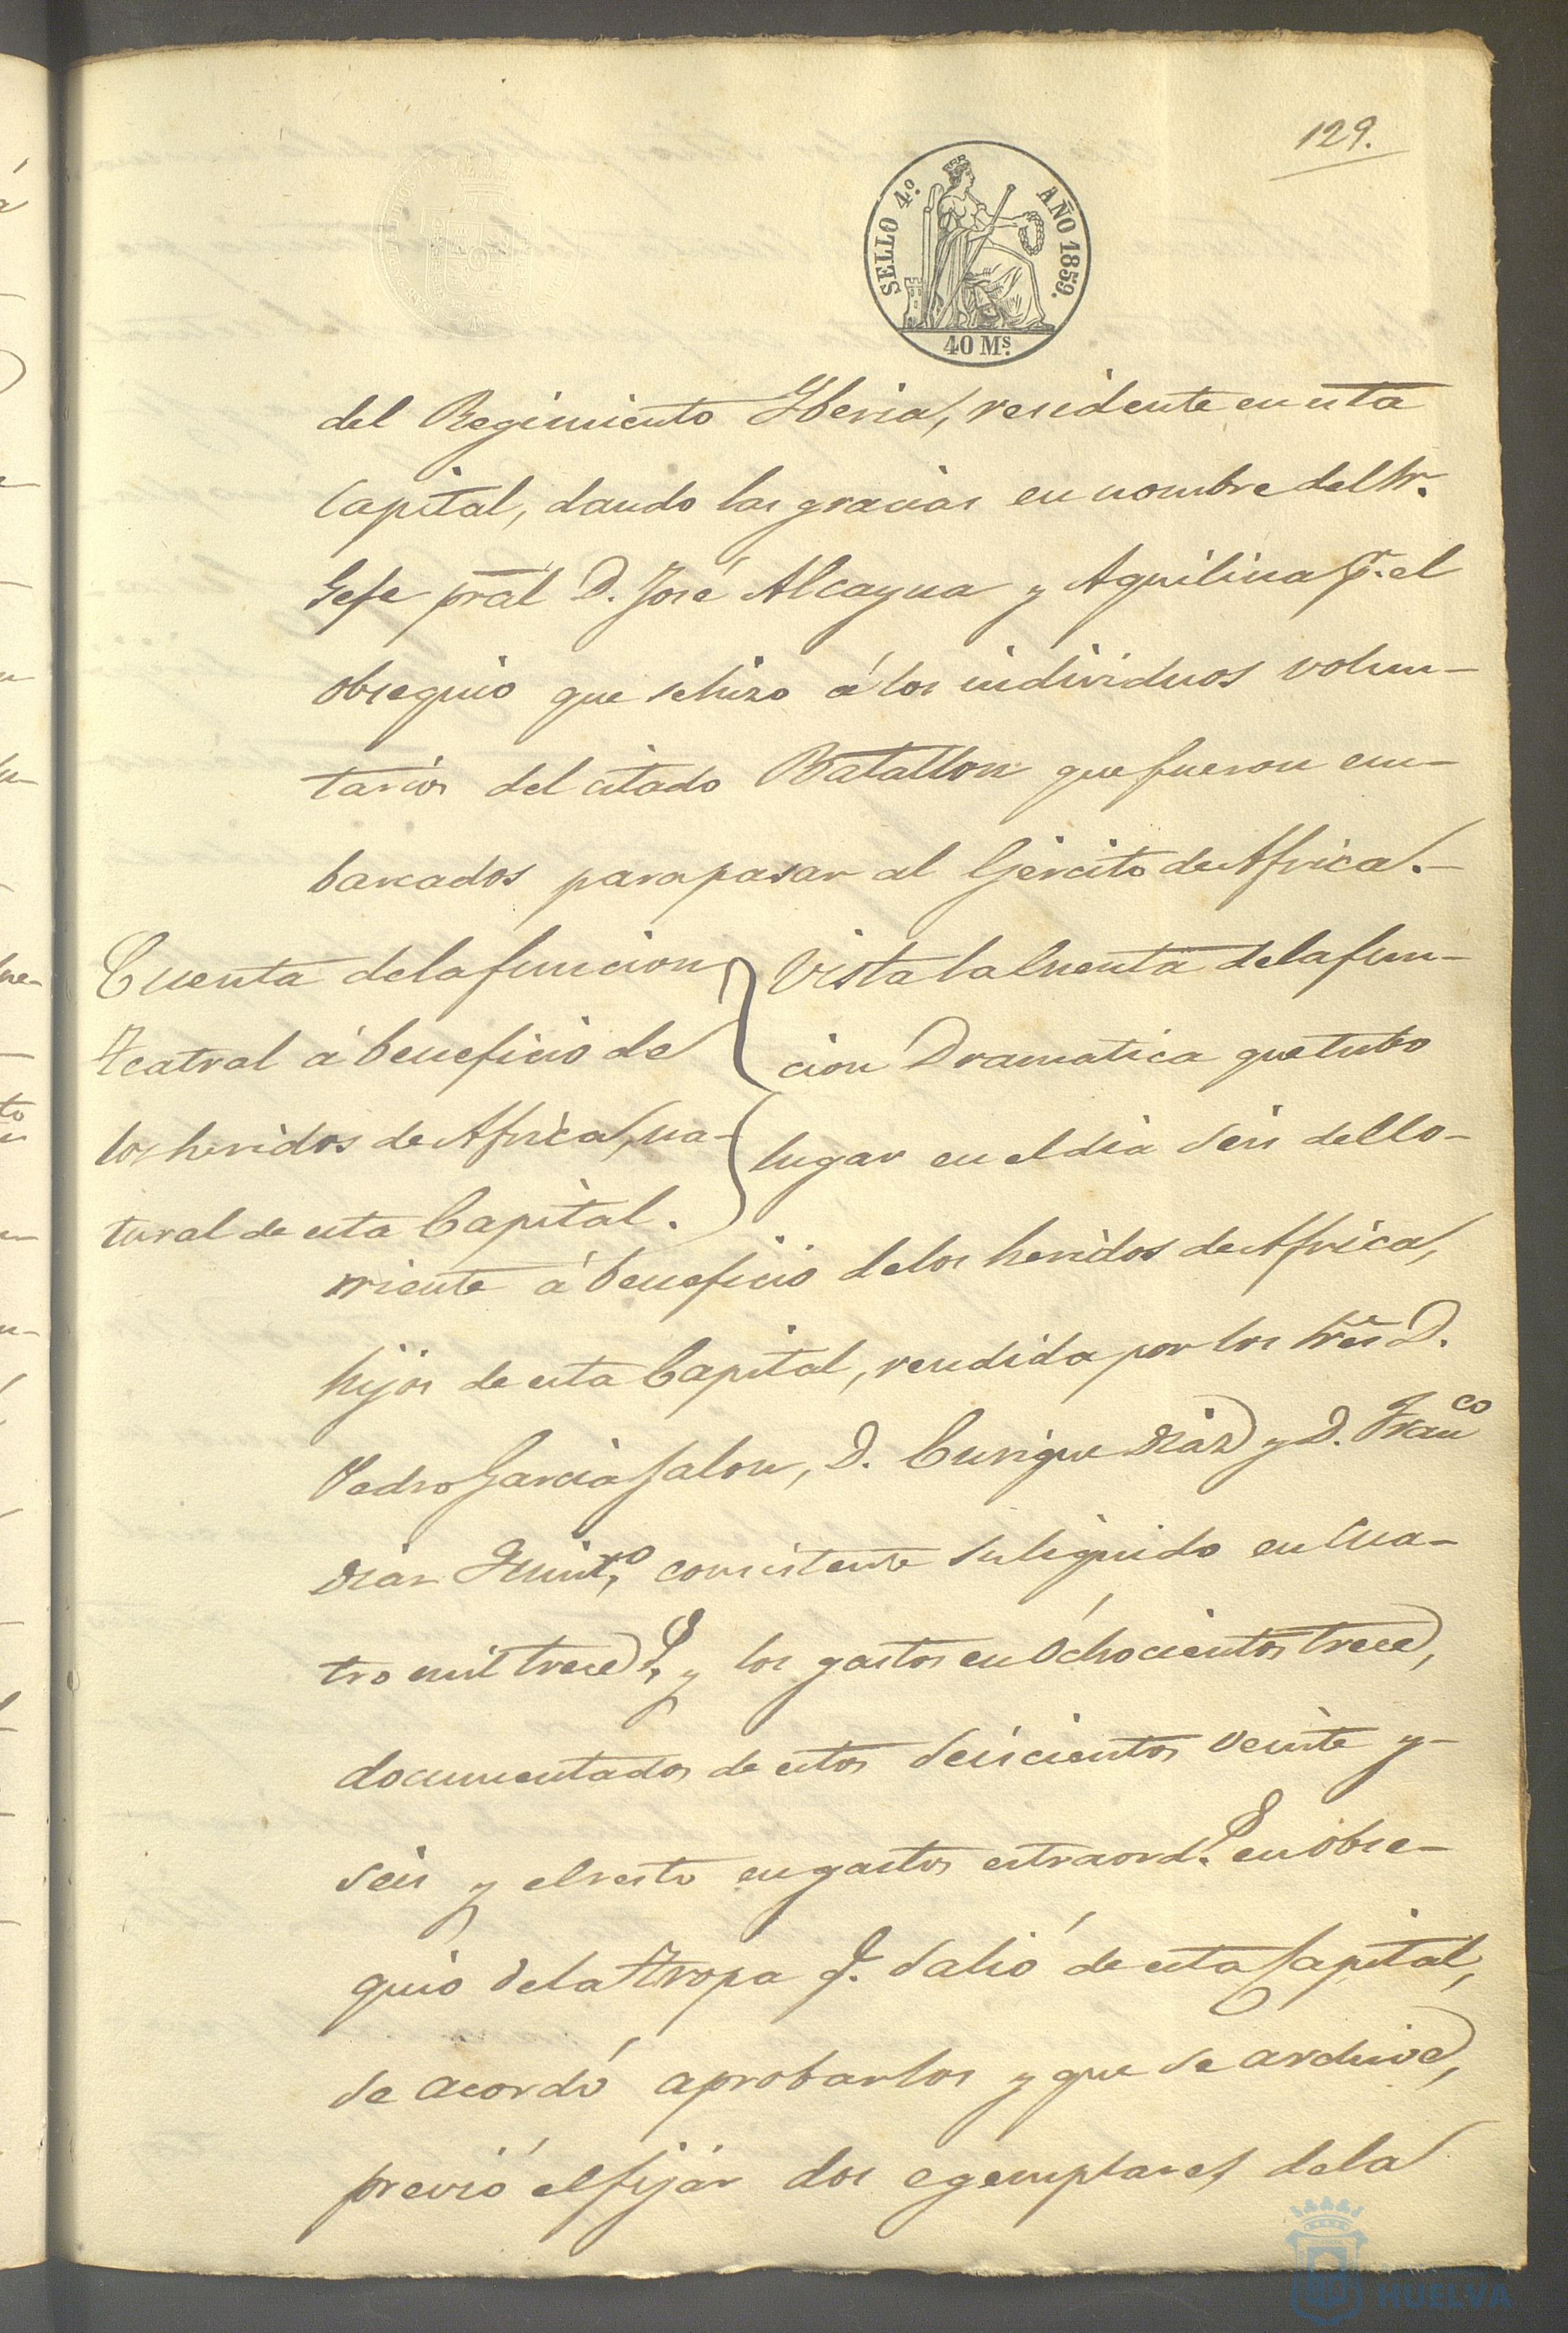 129.
SELLO 4.º AÑO 1859.
40 Ms.
del Regimiento Yberia, residente en esta
Capital, dando las gracias en nombre del Sr.
Gefe pral D. José Alcayna y Aguilina pr. el
obsequio que se hizo á los individuos volun-
tarios del citado Batallon que fueron em-
barcados para pasar al Ejército de Africa.-
Cuenta de la funcion
Teatral á beneficio de
los heridos de Africa, na-
tural de esta Capital.
Vista la Cuenta de la fun-
cion Dramatica que tubo
lugar en el dia seis del co-
rriente á beneficio de los heridos de Africa,
hijos de esta Capital, rendida por los Sres D.
Pedro Garcia Jalon, D. Enrique Diaz y D. Franco
Diaz consistente su liquido en cua-
tro mil trece y los gastos en Ochocientos trece,
documentados de estos seiscientos veinte y-
seis y el resto en gastos estraord.s en obse-
quio de la Tropa q. salió de esta Capital,
se acordó aprobarlos y que se archive,
previó el fijar dos egemplares de la
HUELVA